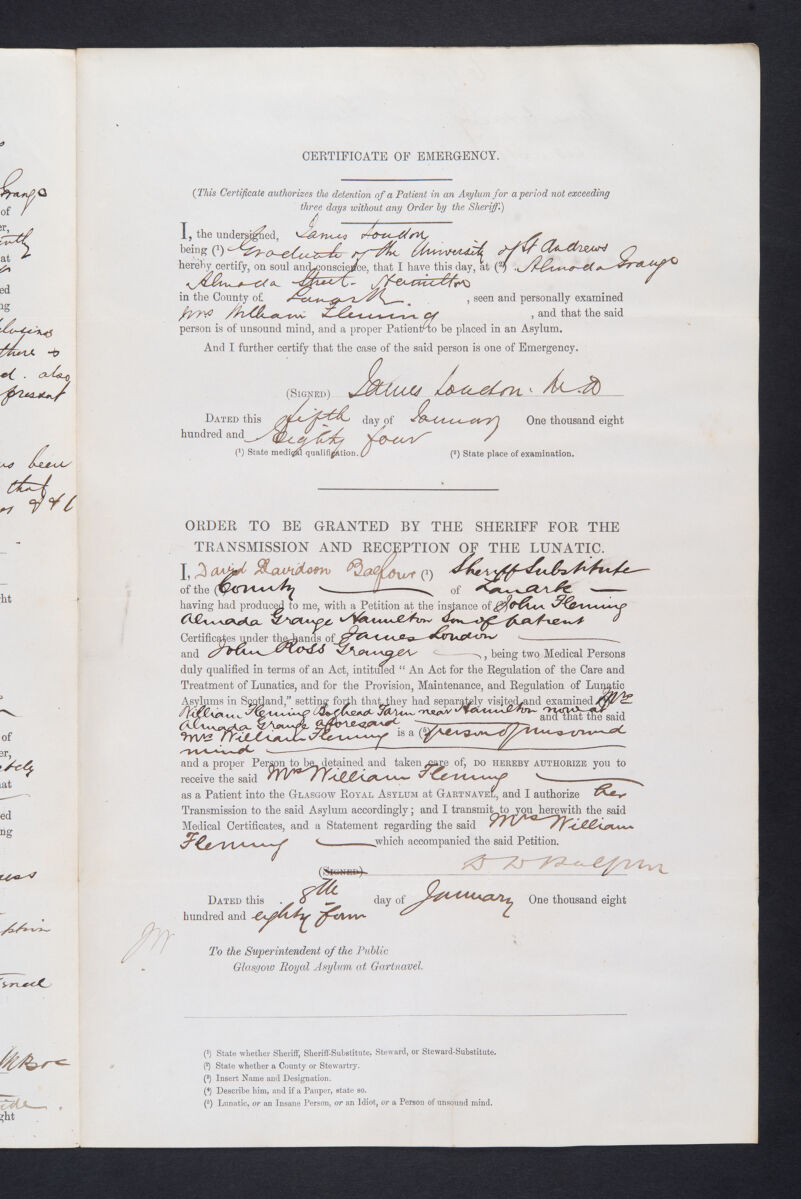 CERTIFICATE OF EMERGENCY.
(This Certificate authorizes the detention of a Patient in an Asylum for a period not exceeding
three days without any Order by the Sheriff.)
I, the undersigned, James Loudon
being (¹) Graduate of the University of St Andrews
hereby certify, on soul and conscience, that I have this day, at (²) Almada Grange
Almada Street. Hamilton
in the County of Lanark. , seen and personally examined
Mrs William Fleming , and that the said
person is of unsound mind, and a proper Patient to be placed in an Asylum.
And I further certify that the case of the said person is one of Emergency.
(SIGNED) James Loudon. M.D
DATED this fifth day of January One thousand eight
hundred and Eighty four
(¹) State medical qualification. (²) State place of examination.
ORDER TO BE GRANTED BY THE SHERIFF FOR THE
TRANSMISSION AND RECEPTION OF THE LUNATIC.
I, David Davidson Balfour (¹) Sheriff Substitute
of the (²) County of Lanark
having had produced to me, with a Petition at the instance of (³) John Fleming
Almada Grange Hamilton Son of patient
Certificates under the hands of James Loudon
and John Ross Granger , being two Medical Persons
duly qualified in terms of an Act, intituled “ An Act for the Regulation of the Care and
Treatment of Lunatics, and for the Provision, Maintenance, and Regulation of Lunatic
Asylums in Scotland,” setting forth that they had separately visited and examined (⁴) Mrs
William Fleming Farm near Hamilton now at
Almada Grange aforesaid and that the said
Mrs William Fleming is a (⁵) person of unsound
mind
and a proper Person to be detained and taken care of, DO HEREBY AUTHORIZE you to
receive the said Mrs William Fleming
as a Patient into the GLASGOW ROYAL ASYLUM AT GARTNAVEL, and I authorize her
Transmission to the said Asylum accordingly ; and I transmit to you herewith the said
Medical Certificates, and a Statement regarding the said Mrs William
Fleming which accompanied the said Petition.
(SIGNED) D D Balfour
DATED this 8th day of January One thousand eight
hundred and eighty four
To the Superintendent of the Public
Glasgow Royal Asylum at Gartnavel.
(¹) State whether Sheriff, Sheriff-Substitute, Steward, or Steward-Substitute.
(²) State whether a County or Stewartry.
(³) Insert Name and Designation.
(⁴) Describe him, and if a Pauper, state so.
(⁵) Lunatic, or an Insane Person, or an Idiot, or a Person of unsound mind.